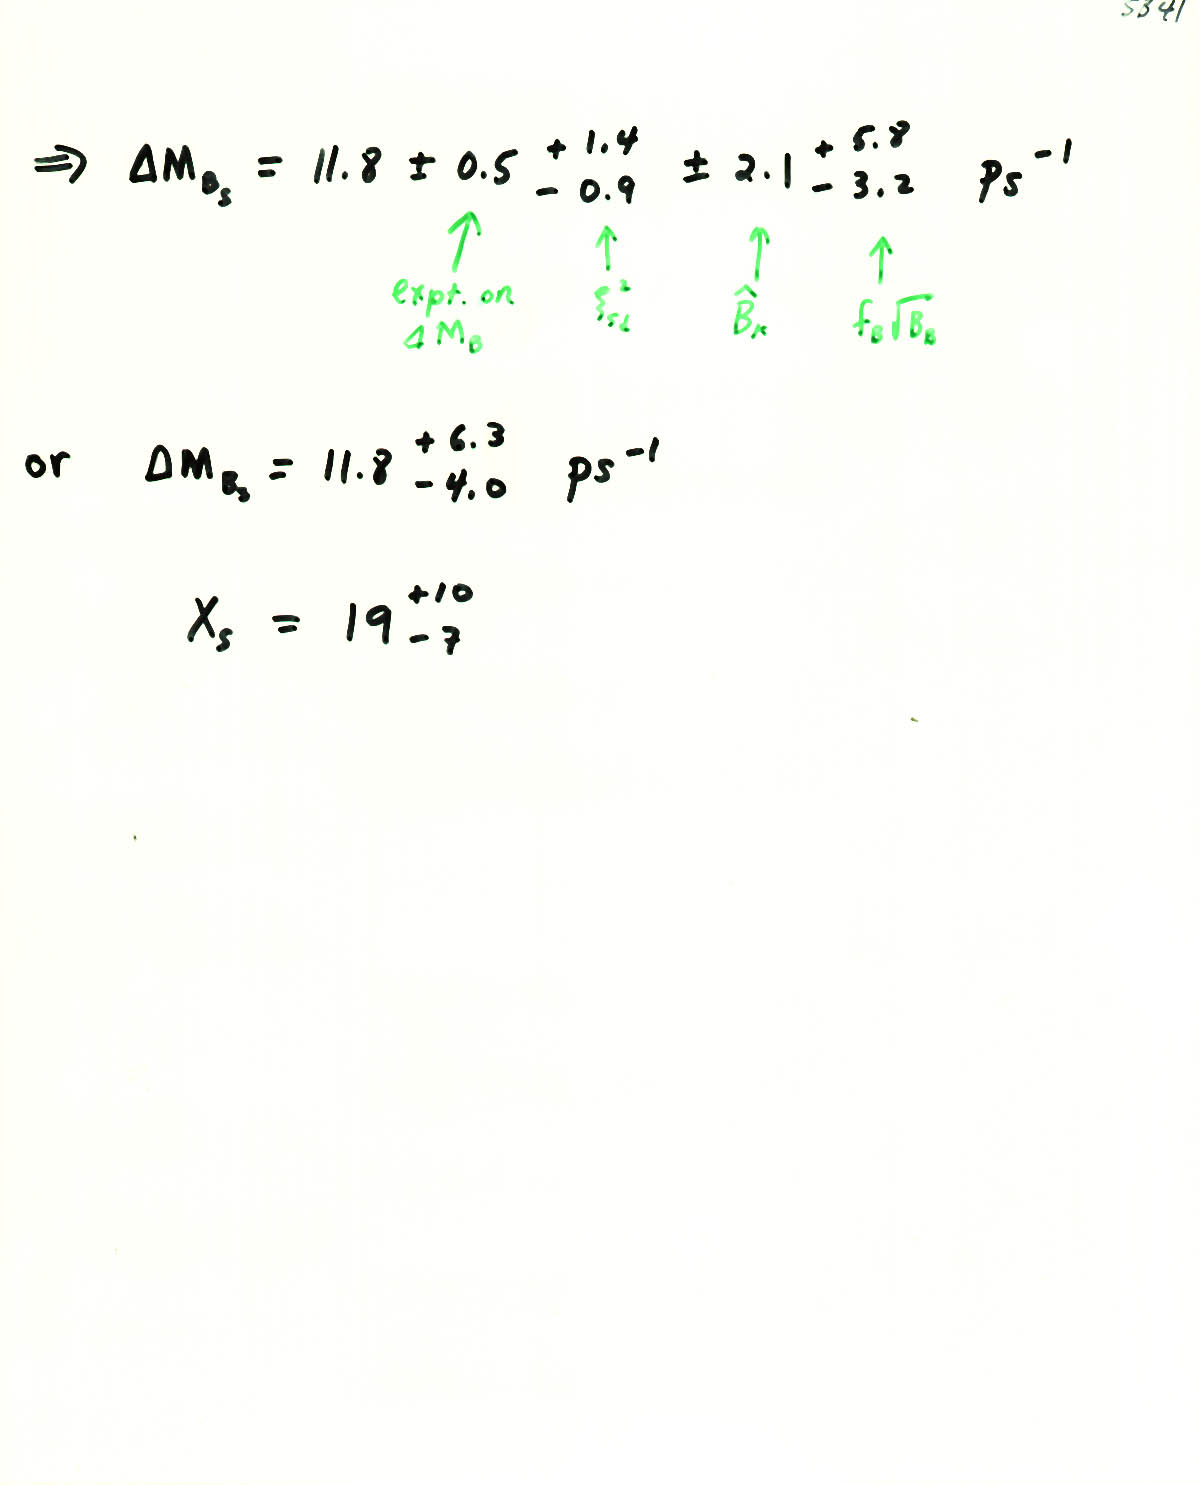 5341
⇒ ΔM_{B_s} = 11.8 ± 0.5 ^{+1.4}_{-0.9} ± 2.1 ^{+5.8}_{-3.2} ps^{-1}
↑ ↑ ↑ ↑
expt. on ξ^2_{sd} B̂_K f_B√B_B
ΔM_B
or ΔM_{B_s} = 11.8 ^{+6.3}_{-4.0} ps^{-1}
X_s = 19 ^{+10}_{-7}